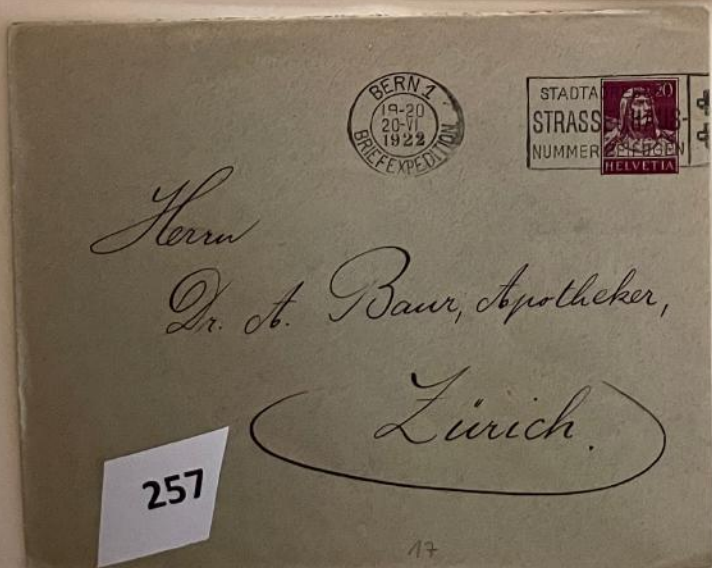 BERN 1
19-20
20·VI
1922
BRIEFEXPEDITION
20
STRASS
NUMMER
HELVETIA
Herrn
Dr. A. Baur, Apotheker,
Zürich.
257
17